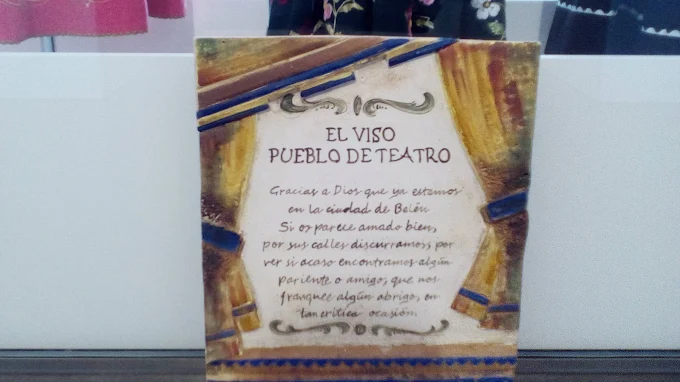 EL VISO
PUEBLO DE TEATRO
Gracias a Dios que ya estamos
en la ciudad de Belén
Si os parece amado bien,
por sus calles discurramos, por
ver si acaso encontramos algún
pariente o amigo, que nos
franquee algún abrigo, en
tan crítica ocasión.